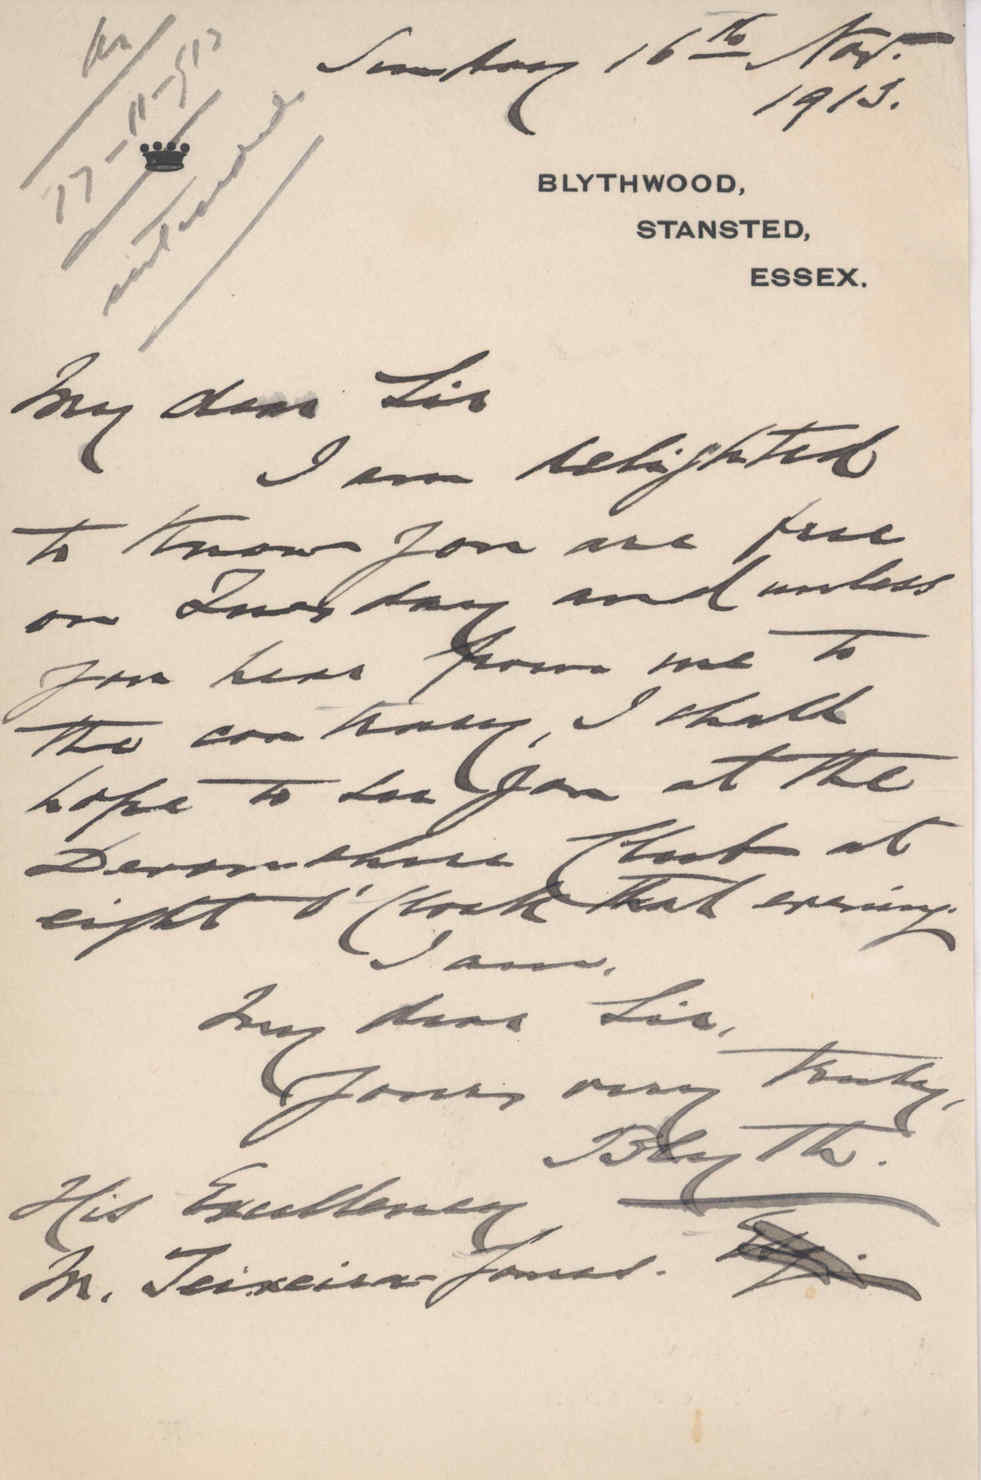 Sunday 16th Nov.
1913.
17-11-913
BLYTHWOOD,
STANSTED,
ESSEX.
My dear Sir
I am delighted
to know you are free
on Tuesday and unless
you hear from me to
the contrary, I shall
hope to see you at the
Devonshire Club at
eight o'Clock that evening.
I am,
My dear Sir,
Yours very truly,
Blyth.
His Excellency
M. Teixeira-Gomes.